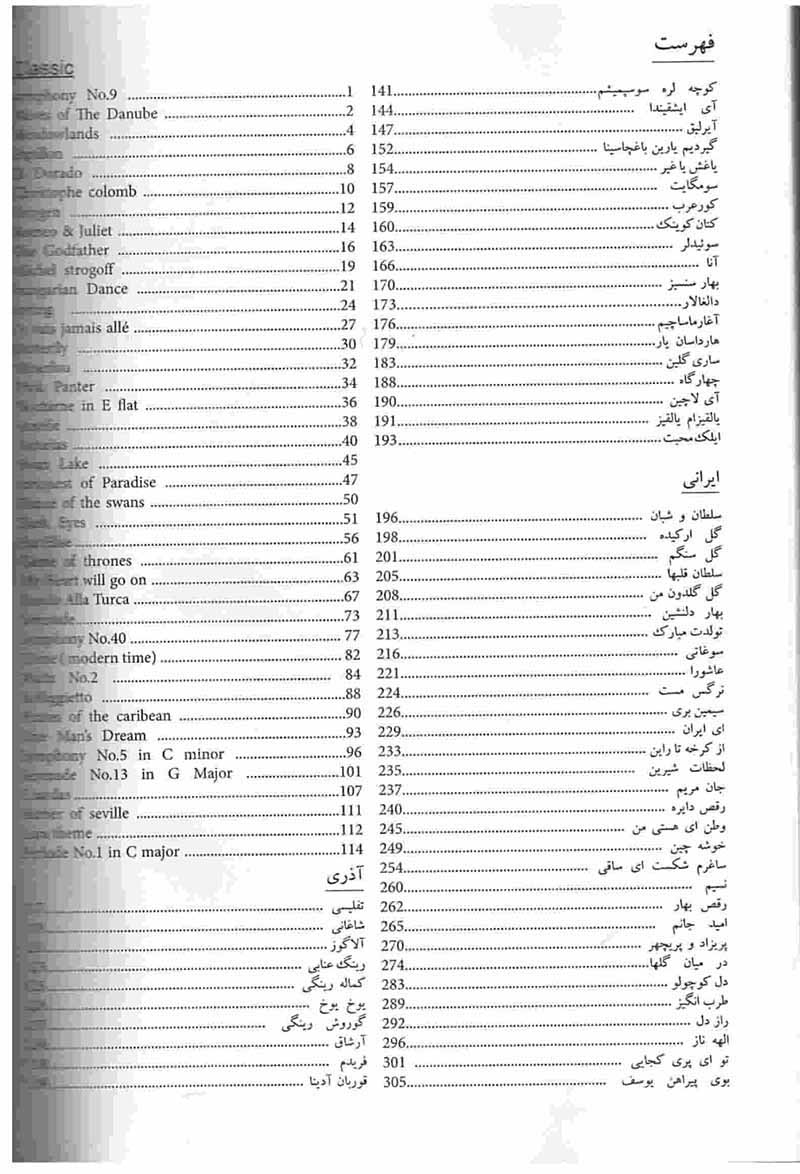 فهرست
Classic
Symphony No.9 ........ 1
Waves of The Danube ........ 2
Meadowlands ........ 4
Papillon ........ 6
El Dorado ........ 8
Christophe colomb ........ 10
........ 12
Romeo & Juliet ........ 14
The Godfather ........ 16
Michel strogoff ........ 19
Hungarian Dance ........ 21
........ 24
jamais allé ........ 27
Butterfly ........ 30
........ 32
Pink Panter ........ 34
Nocturne in E flat ........ 36
........ 38
Asturias ........ 40
Swan Lake ........ 45
Conquest of Paradise ........ 47
of the swans ........ 50
Dark Eyes ........ 51
Fur Elise ........ 56
Game of thrones ........ 61
My Heart will go on ........ 63
Rondo Alla Turca ........ 67
Serenade ........ 73
Symphony No.40 ........ 77
( modern time) ........ 82
Waltz No.2 ........ 84
........ 88
Pirates of the caribean ........ 90
Man's Dream ........ 93
Symphony No.5 in C minor ........ 96
Serenade No.13 in G Major ........ 101
Czardas ........ 107
Barber of seville ........ 111
theme ........ 112
Prelude No.1 in C major ........ 114
آذری
تفلیسی ........
شاغانی ........
آلاگوز ........
رینگ عنابی ........
کماله رینگی ........
یوخ یوخ ........
گوروش رینگی ........
آرشاق ........
فریدم ........
قوربان آدینا ........
کوچه لره سوسپمیشم ........ 141
آی ایشقیندا ........ 144
آیرلیق ........ 147
گیردیم یارین باغچاسینا ........ 152
یاغش یاغیر ........ 154
سومگایت ........ 157
کورعرب ........ 159
کتان کوینک ........ 160
سوئیدلر ........ 163
آنا ........ 166
بهار سنسیز ........ 170
دالغالار ........ 173
آغارماساچیم ........ 176
هارداسان یار ........ 179
ساری گلین ........ 183
چهارگاه ........ 188
آی لاچین ........ 190
یالقیزام یالقیز ........ 191
ایلک محبت ........ 193
ایرانی
سلطان و شبان ........ 196
گل ارکیده ........ 198
گل سنگم ........ 201
سلطان قلبها ........ 205
گل گلدون من ........ 208
بهار دلنشین ........ 211
تولدت مبارک ........ 213
سوغاتی ........ 216
عاشورا ........ 221
نرگس مست ........ 224
سیمین بری ........ 226
ای ایران ........ 229
از کرخه تا راین ........ 233
لحظات شیرین ........ 235
جان مریم ........ 237
رقص دایره ........ 240
وطن ای هستی من ........ 245
خوشه چین ........ 249
ساغرم شکست ای ساقی ........ 254
نسیم ........ 260
رقص بهار ........ 262
امید جانم ........ 265
پریزاد و پریچهر ........ 270
در میان گلها ........ 274
دل کوچولو ........ 283
طرب انگیز ........ 289
راز دل ........ 292
الهه ناز ........ 296
تو ای پری کجایی ........ 301
بوی پیراهن یوسف ........ 305